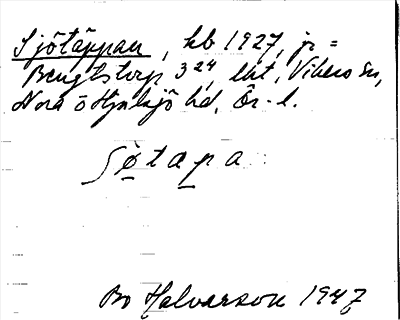 Sjötäppan, kb 1927, jr =
Bengtstorp 3²⁴, lht, Vikers sn,
Nora o Hjulsjö hd, Ör. l.
ʃötapa
Bo Halvarson 1947